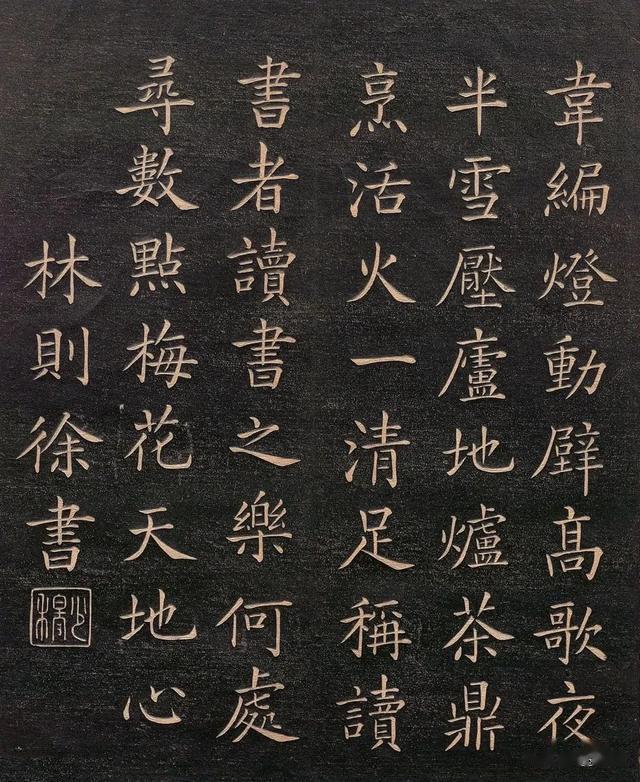 韋編燈動壁髙歌夜
半雪壓廬地爐茶鼎
烹活火一清足稱讀
書者讀書之樂何處
尋數點梅花天地心
林則徐書
少穆